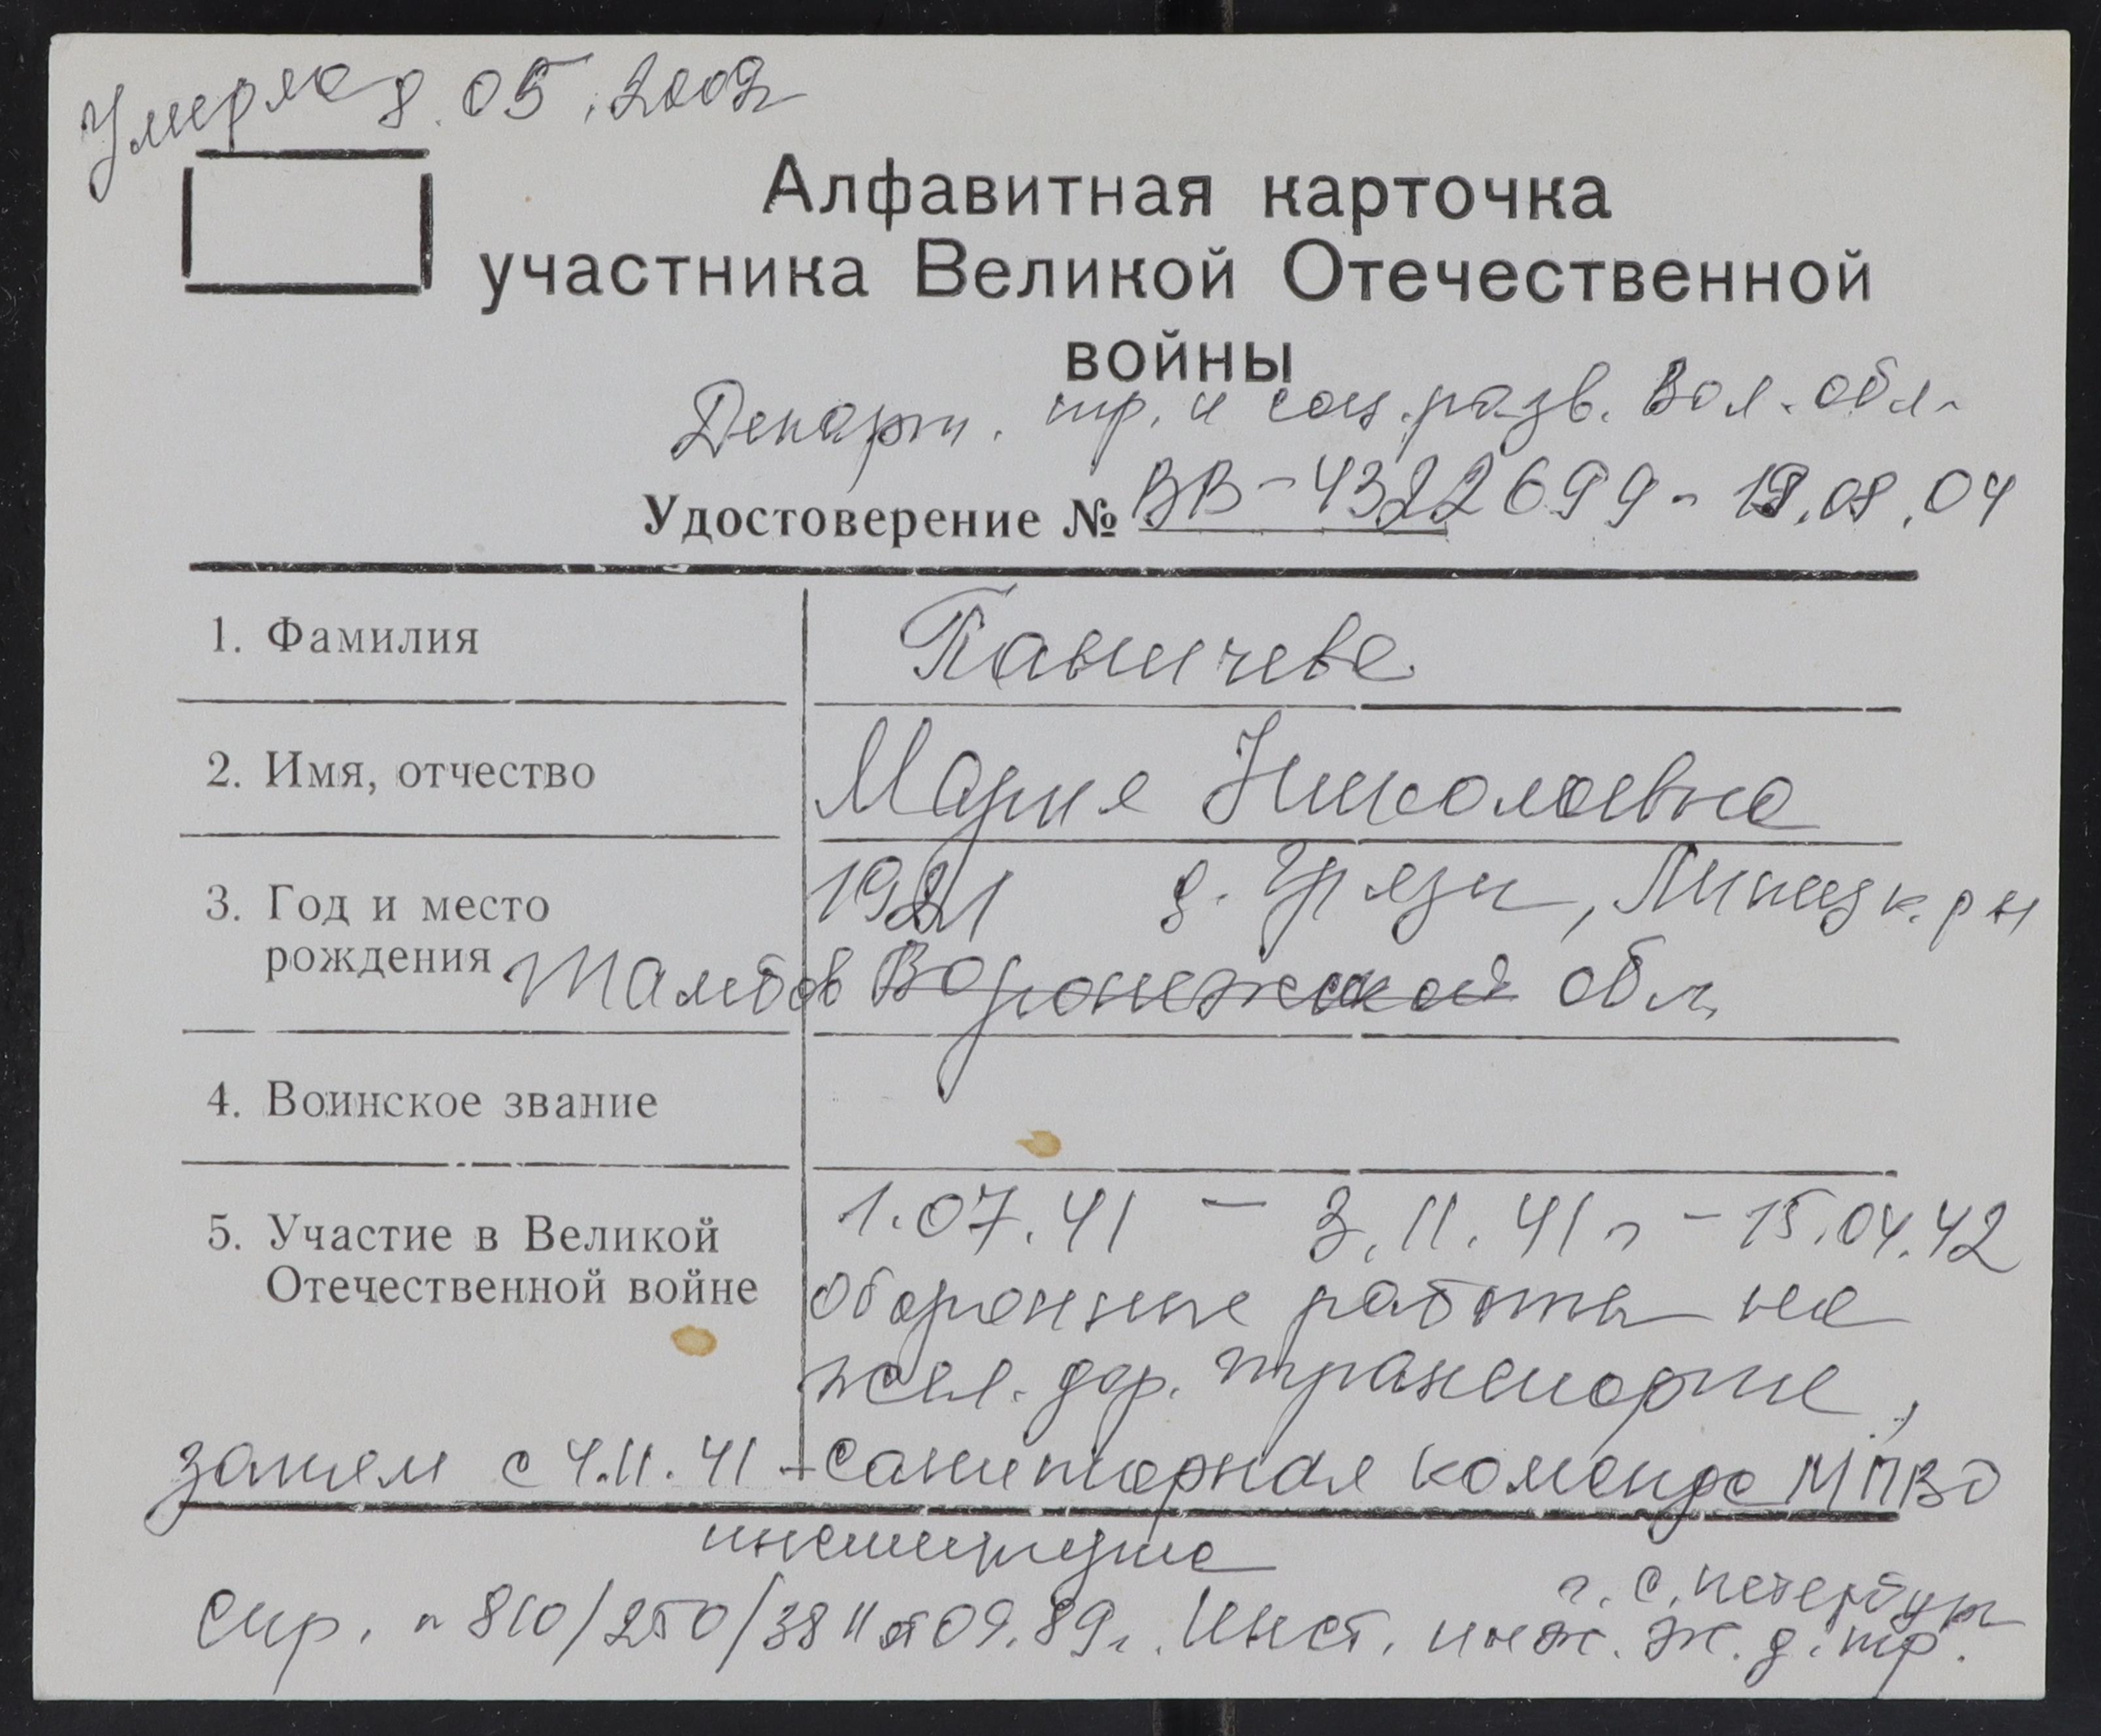 Умерла 8.05.2009г
Алфавитная карточка
участника Великой Отечественной
войны
Департ. тр. и соц. разв. Вол. обл.
Удостоверение № ВВ-4322699 - 19.08.04
1. Фамилия Паничева
2. Имя, отчество Мария Николаевна
3. Год и место 1921 д. Грязи, Липецк. р-н
рождения Тамбов Воронежской обл.
4. Воинское звание
5. Участие в Великой 1.07.41 - 3.11.41г - 15.04.42
Отечественной войне оборонные работы на
жел. дор. транспорте,
затем с 4.11.41 - санитарная команда МПВО
института
г. С. Петербург
Спр. 810/250/38 09.89г. Инст. инж. ж. д. тр.